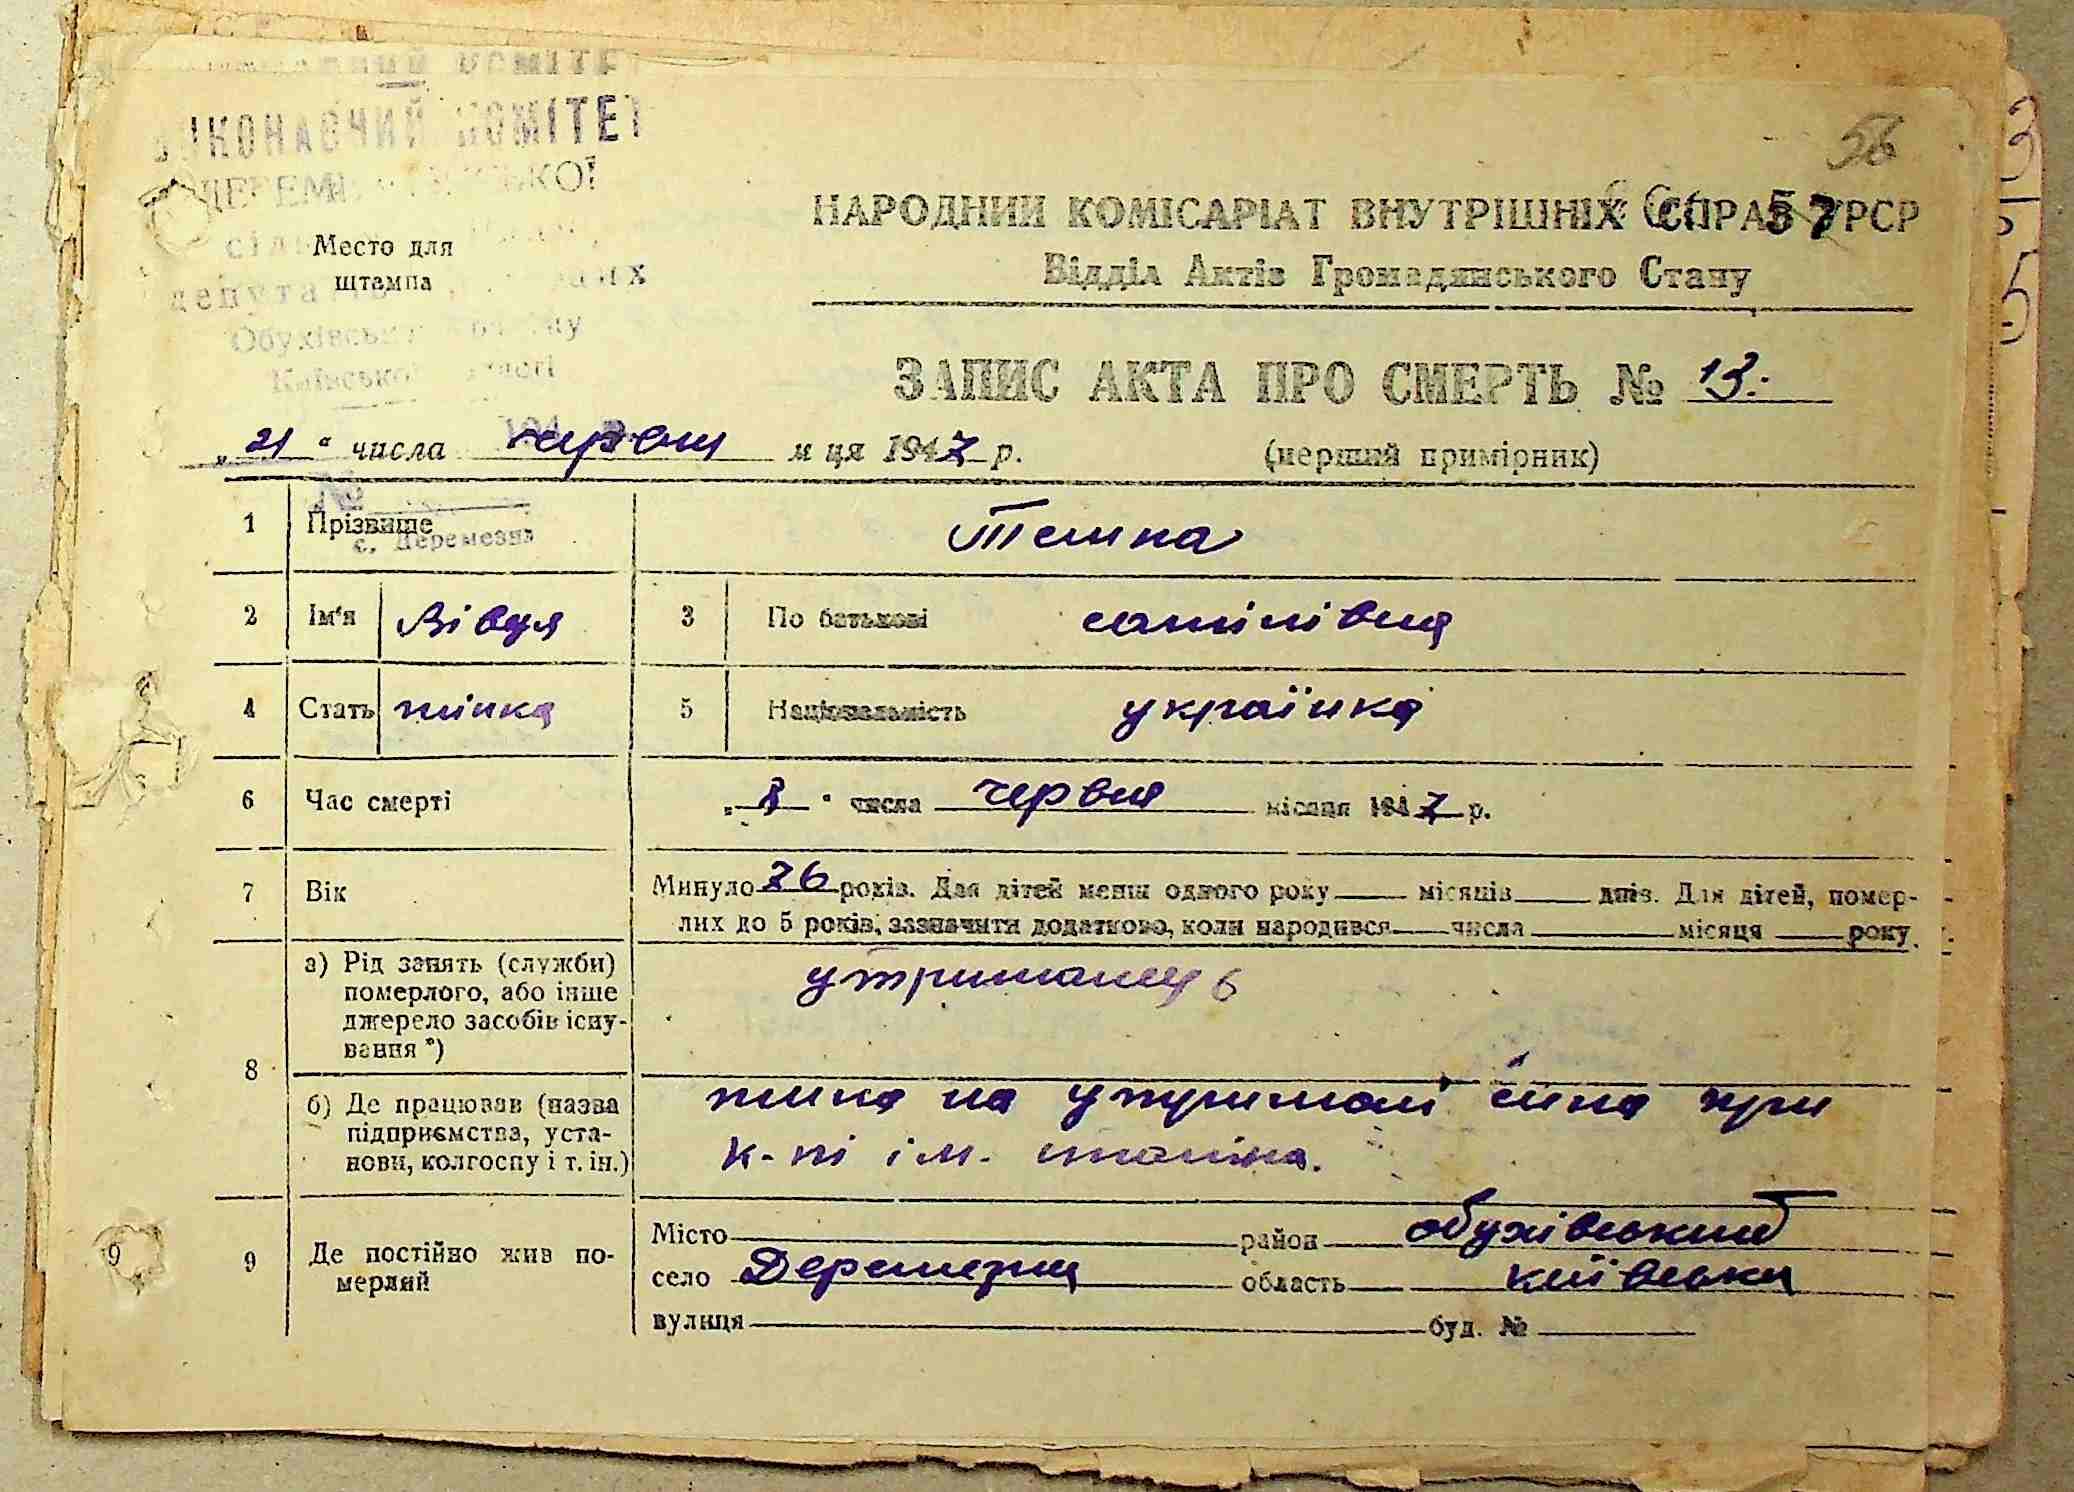 ВИКОНАВЧИЙ КОМІТЕТ
Обухівськ
Київської області
с. Деремезна
56
57
Место для
штампа
НАРОДНИЙ КОМІСАРІАТ ВНУТРІШНІХ СПРАВ УРСР
Відділ Актів Громадянського Стану
ЗАПИС АКТА ПРО СМЕРТЬ № 13.
„21“ числа червня м ця 1947 р. (перший примірник)
1 Прізвище Темна
2 Ім'я Вівдя 3 По батькові
4 Стать жінка 5 Національність українка
6 Час смерті числа червня місяця 1947 р.
7 Вік Минуло 76 років. Для дітей менш одного року місяців днів. Для дітей, помер-
лих до 5 років, зазначити додатково, коли народився числа місяця року
8 а) Рід занять (служби)
померлого, або інше
джерело засобів існу-
вання *)
утриманець
б) Де працював (назва
підприємства, уста-
нови, колгоспу і т. ін.)
жила на утримані сина при
к-пі ім. сталіна.
9 Де постійно жив по-
мерлий
Місто район обухівський
село Деремезна область київська
вулиця буд. №
9